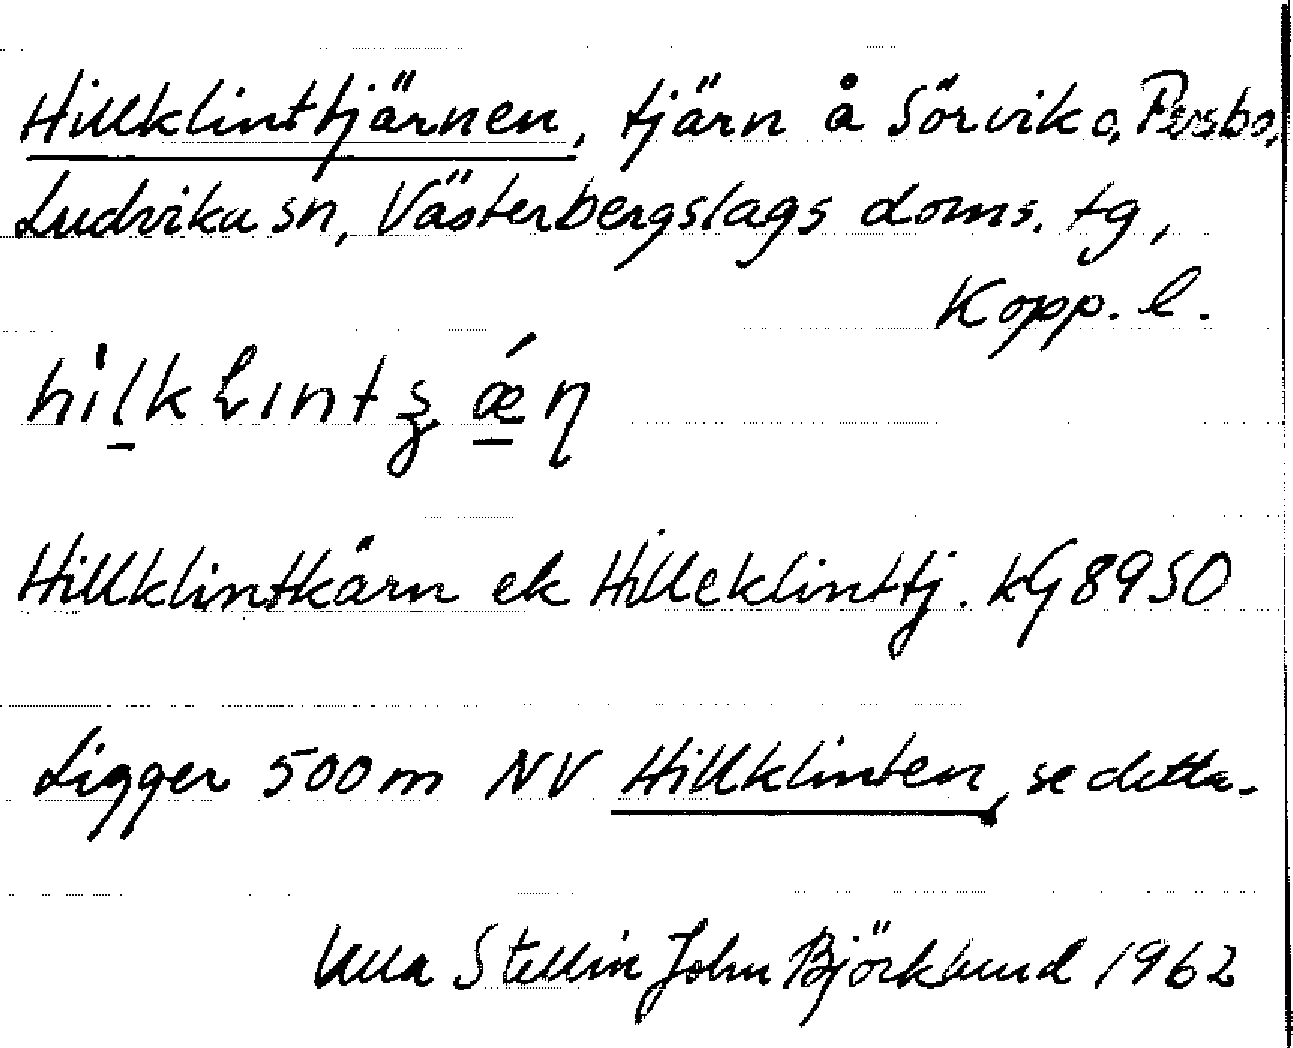 Hillklinttjärnen, tjärn å Sörvik o. Persbo,
Ludvika sn, Västerbergslags doms. tg,
Kopp. l.
Hillklintkärn ek Hilleklinttj. kG 8950
Ligger 500 m NV Hillklinten, se detta.
Ulla Stellin John Björklund 1962